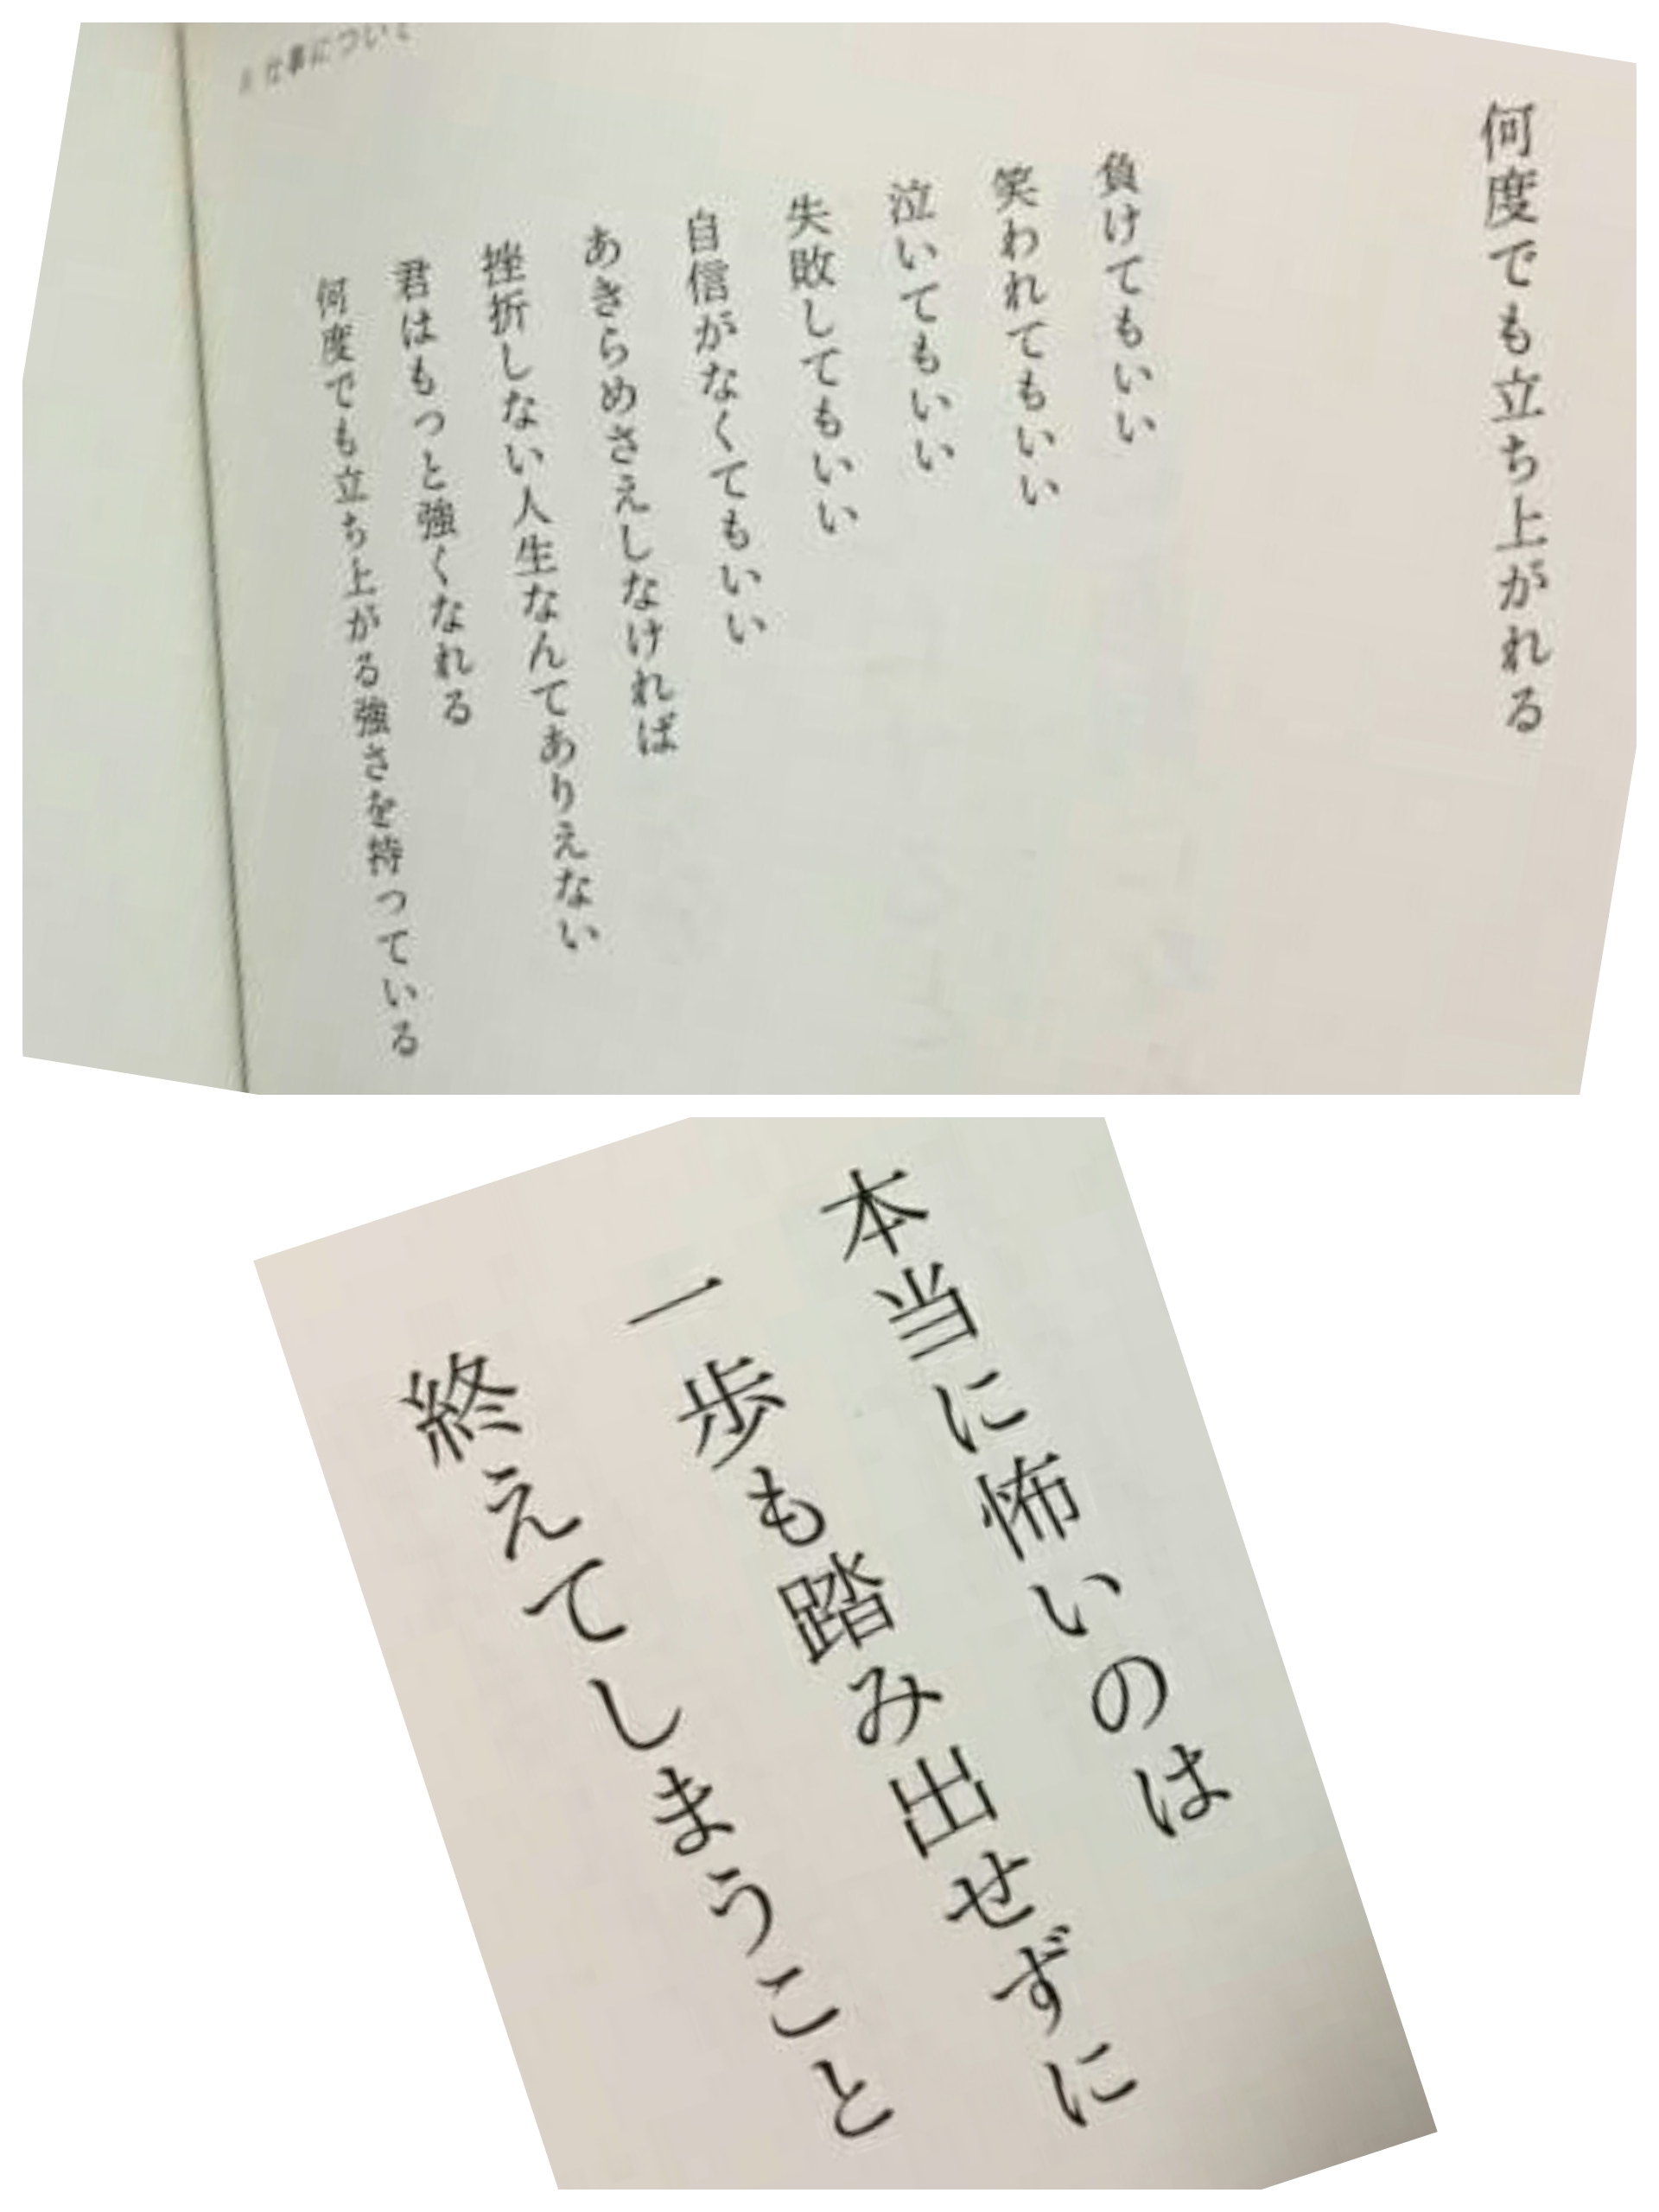 何度でも立ち上がれる
負けてもいい
笑われてもいい
泣いてもいい
失敗してもいい
自信がなくてもいい
あきらめさえしなければ
挫折しない人生なんてありえない
君はもっと強くなれる
何度でも立ち上がる強さを持っている
仕事について
本当に怖いのは
一歩も踏み出せずに
終えてしまうこと